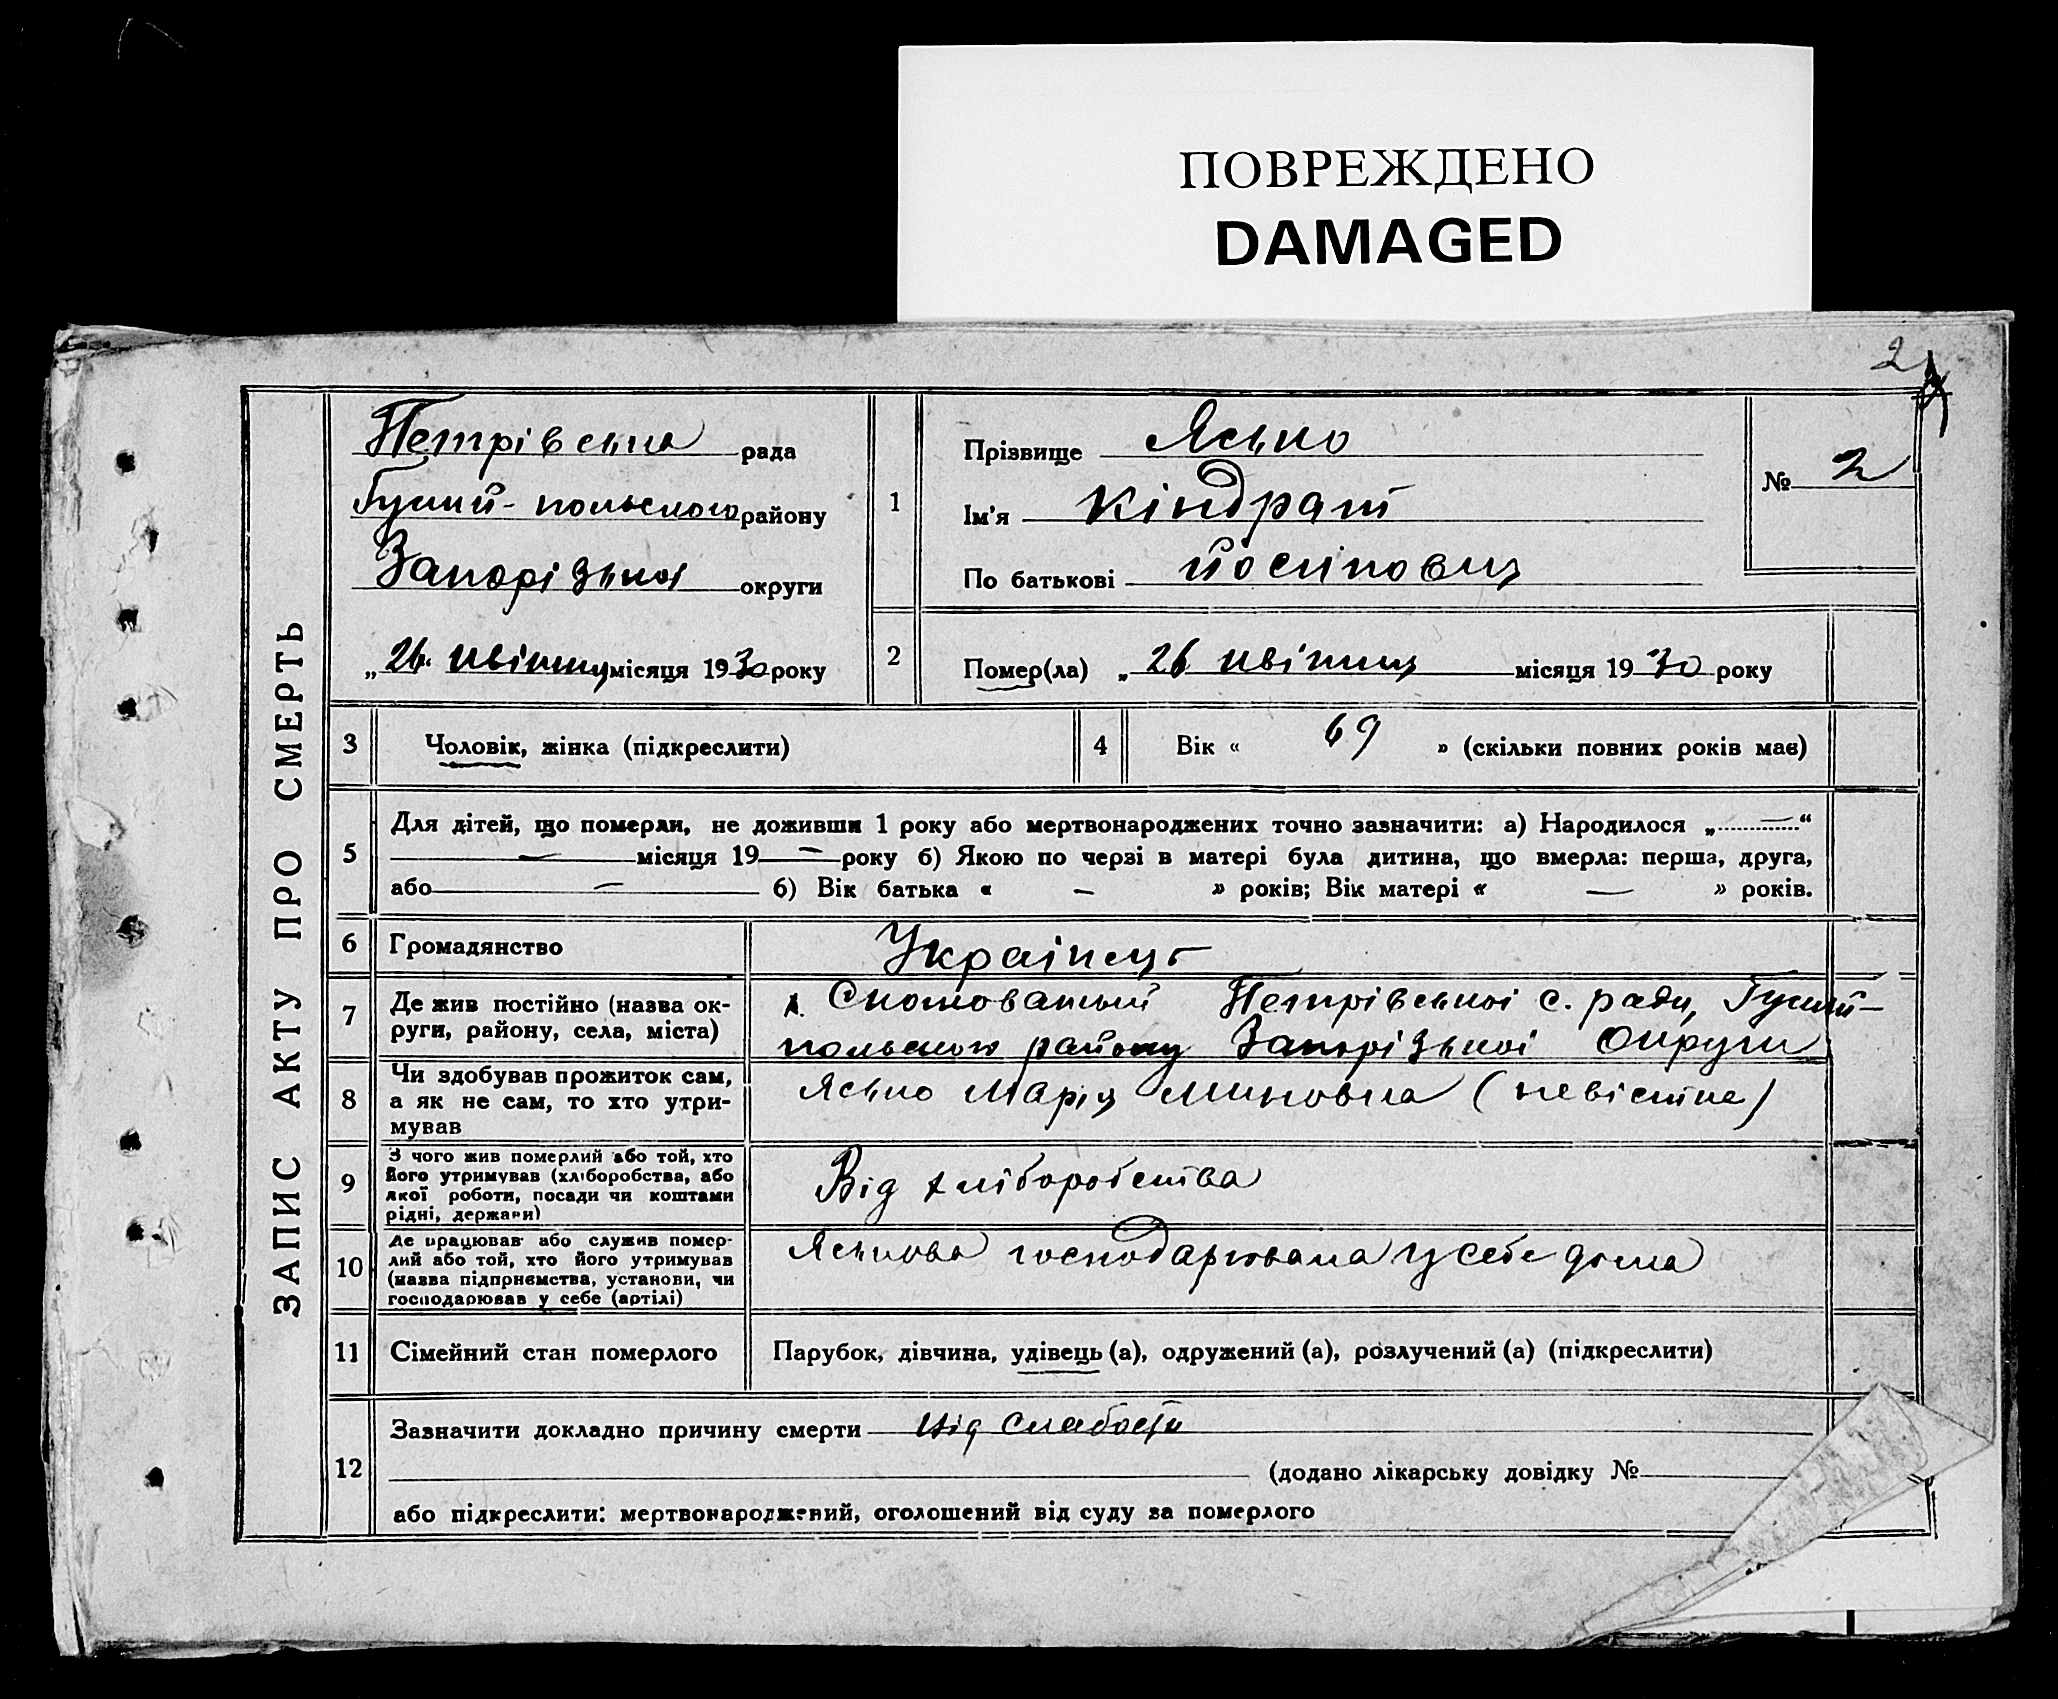 ПОВРЕЖДЕНО
DAMAGED
2
ЗАПИС АКТУ ПРО СМЕРТЬ
Петрівська рада
Гуляй-польського району
Запорізької округи
„26 квітня місяця 1930 року
1
Прізвище Ясько
Ім'я Кіндрат
По батькові Йосипович
№ 2
2
Помер(ла) „26 квітня місяця 1930 року
3
Чоловік, жінка (підкреслити)
4
Вік « 69 » (скільки повних років має)
5
Для дітей, що померли, не доживши 1 року або мертвонароджених точно зазначити: а) Народилося „ — “
— місяця 19 — року б) Якою по черзі в матері була дитина, що вмерла: перша, друга,
або — б) Вік батька « — » років; Вік матері « — » років.
6
Громадянство
Українець
7
Де жив постійно (назва ок-
руги, району, села, міста)
Петрівської с. ради, Гуляй-
польського району Запорізької Округи
8
Чи здобував прожиток сам,
а як не сам, то хто утри-
мував
Ясько Марія Миновна (невістка)
9
З чого жив померлий або той, хто
його утримував (хліборобства, або
якої роботи, посади чи коштами
рідні, держави)
Від хліборобства
10
Де працював або служив помер-
лий або той, хто його утримував
(назва підприємства, установи, чи
господарював у себе (артілі)
Яськова господарювала у себе дома
11
Сімейний стан померлого
Парубок, дівчина, удівець (а), одружений (а), розлучений (а) (підкреслити)
12
Зазначити докладно причину смерти Від слабости
(додано лікарську довідку №
або підкреслити: мертвонароджений, оголошений від суду за померлого